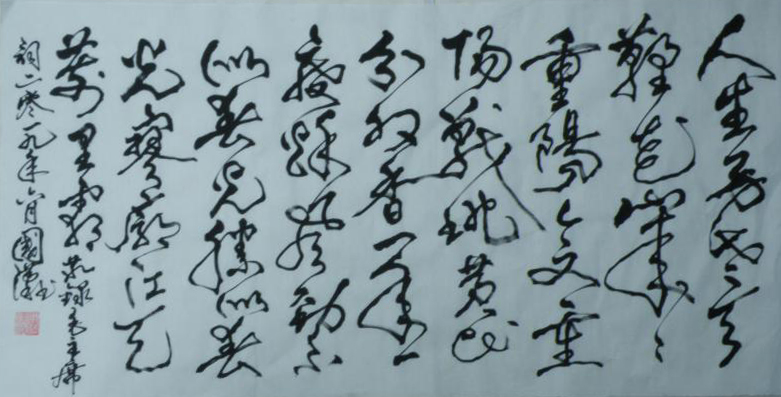 人生易老天
難老歲々
重陽今又重
陽戰地黄花
分外香一年一
度秋風勁不
似春光勝似春
光寥廓江天
萬里霜 恭録毛主席
詞二零一九年六月國